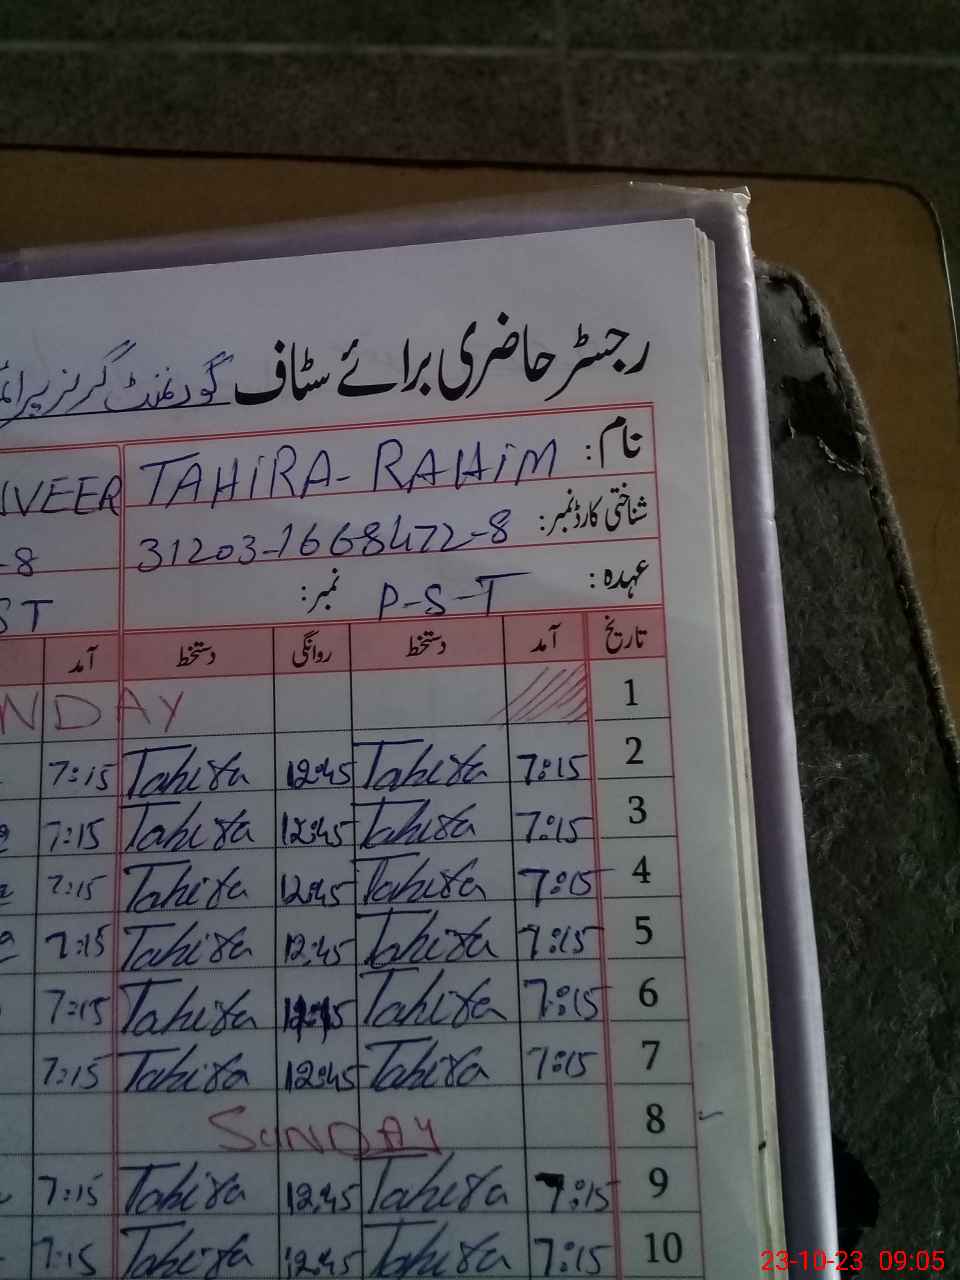 رجسٹر حاضری برائے سٹاف گورنمنٹ گرلز
نام: TAHIRA-RAHIM
شناختی کارڈ نمبر: 31203-1668472-8 -8
عہدہ: P-S-T نمبر: ST
تاریخ آمد دستخط روانگی دستخط آمد
1
2 7:15 Tahira 12:45 Tahira 7:15
3 7:15 Tahira 12:45 Tahira 7:15
4 7:15 Tahira 12:45 Tahira 7:15
5 7:15 Tahira 12:45 Tahira 7:15
6 7:15 Tahira Tahira 7:15
7 7:15 Tahira 12:45 Tahira 7:15
8 SUNDAY
9 7:15 Tahira 12:45 Tahira 7:15
10 7:15 Tahira 12:45 Tahira 7:15
23-10-23 09:05